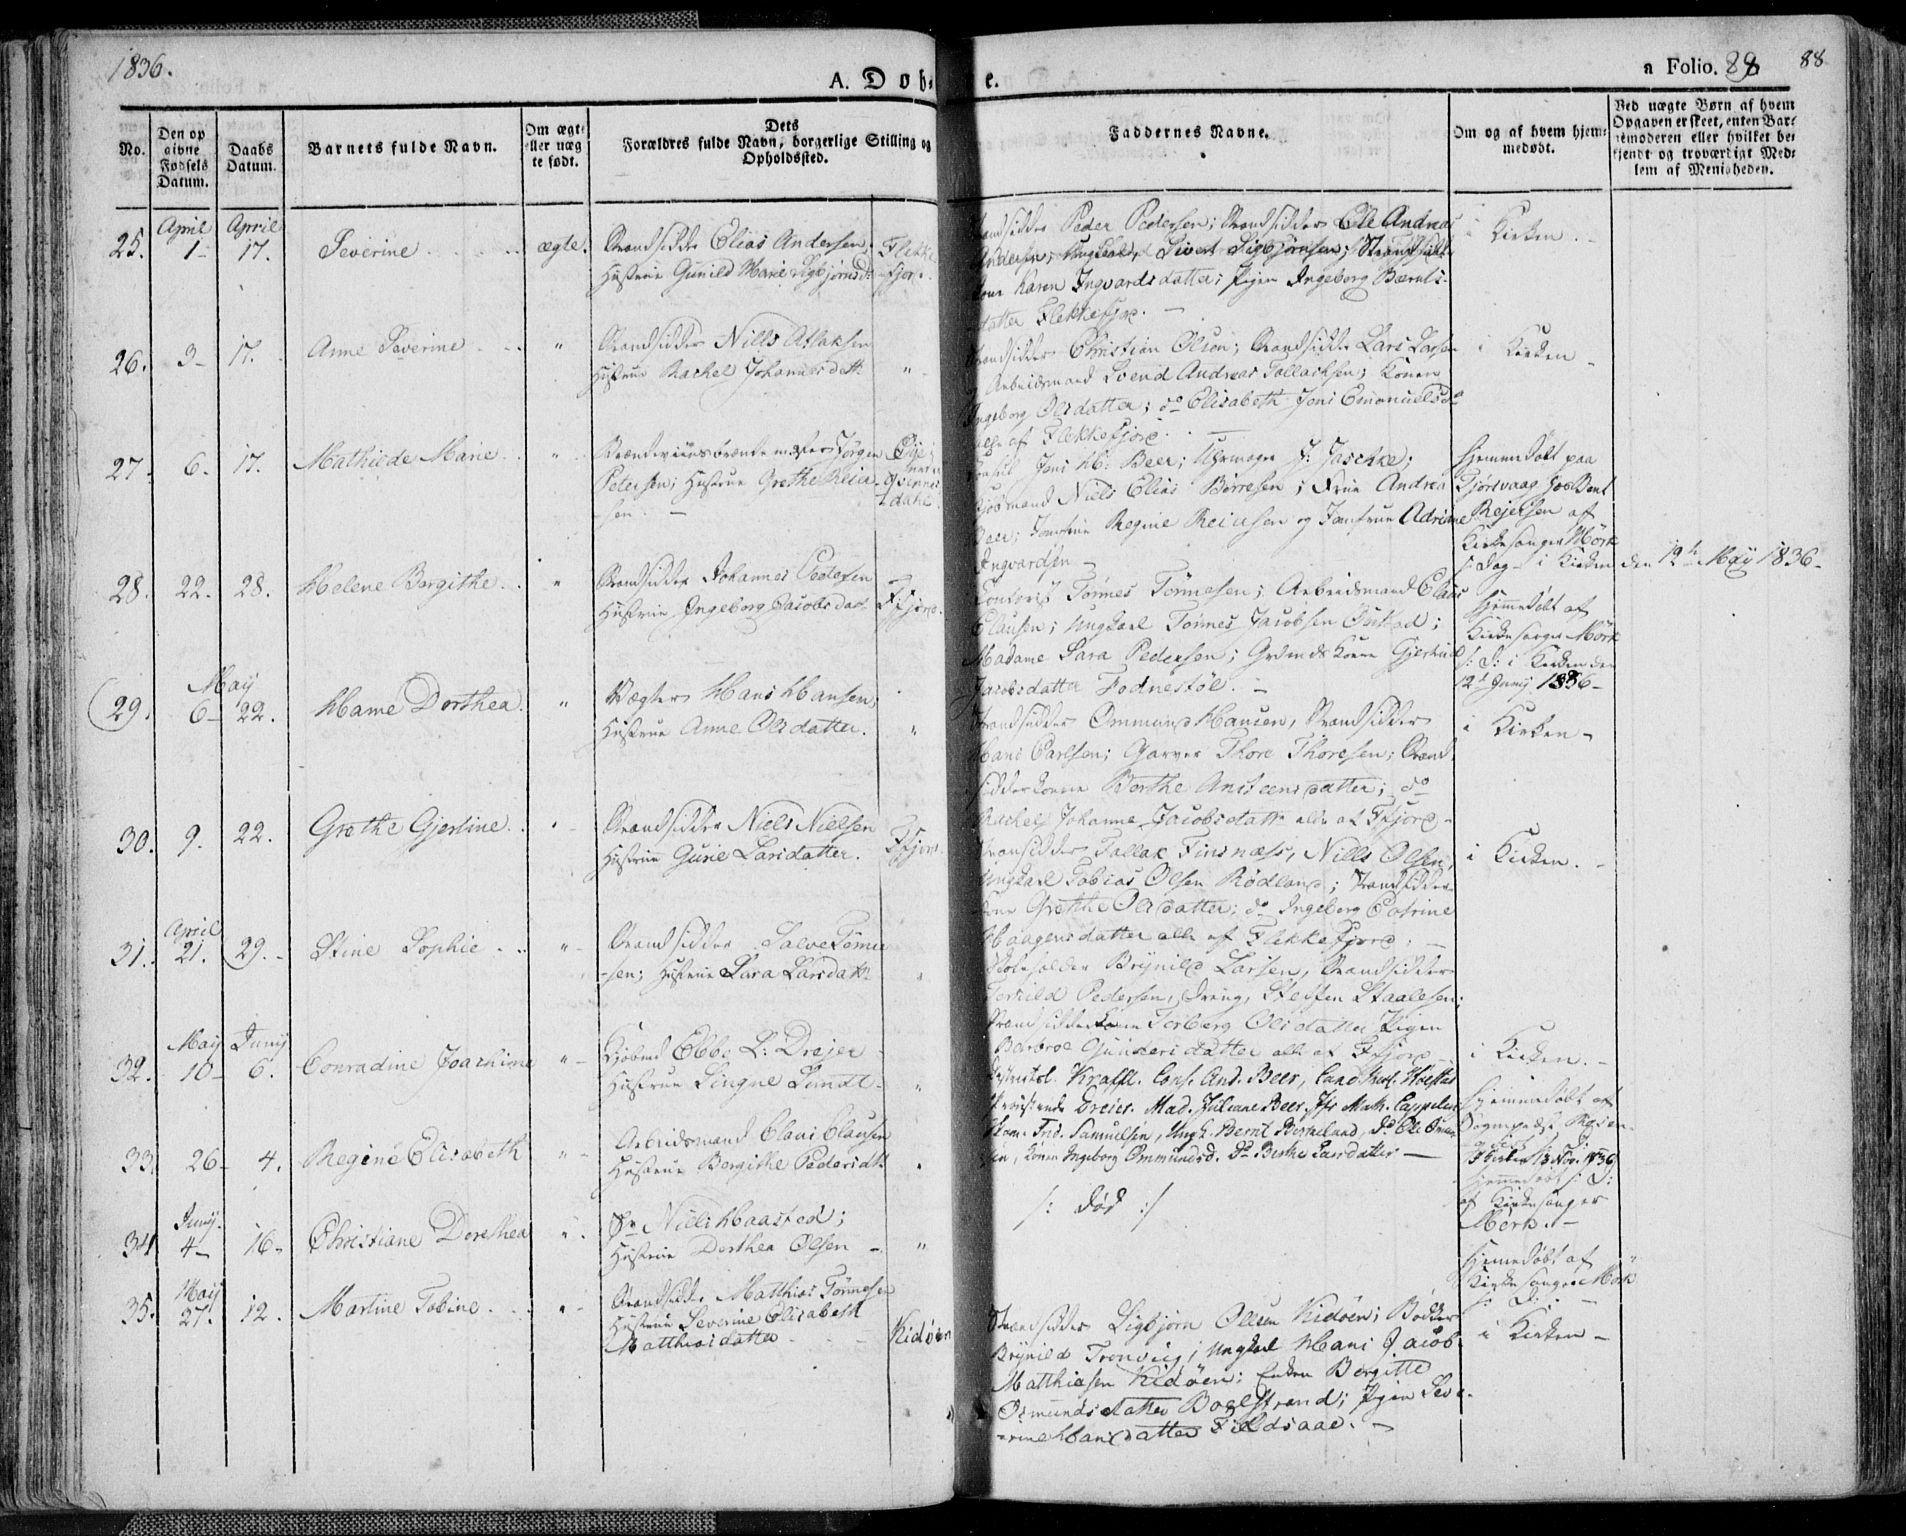 1836.
A. Døbte.
a Folio. 88
88
No.
Den op
givne
Fødsels
Datum.
Daabs
Datum.
Barnets fulde Navn.
Om ægte
eller uæg
te født.
Dets
Forældres fulde Navn, borgerlige Stilling og
Opholdssted.
Faddernes Navne.
Om og af hvem hjem-
medøbt.
Ved uægte Børn af hvem
Opgaven er skeet, enten Bar-
nemoderen eller hvilket be-
kjendt og troværdigt Med-
lem af Menigheden.
April April
25. 1- 17. Severine ægte. Strandsidder Elias Andersen, Flekke
Hustrue Gunild Marie Sigbjørnsd. fjord.
Strandsidder Peder Pedersen; Strandsidder Ole Andreas
Andersen, Ungkarl Sivert Sigbjørnsen, Strandsidder
kone Karen Ingvardsdatter; Pigen Ingeborg Bærnts-
datter Flekkefjord. -
i Kirken.
26. 3- 17. Anne Severine " Strandsidder Nills Aslaksen
Hustrue Rachel Johannesdatt. "
Strandsidder Christian Olson; Strandsidder Lars Larsen
Arbeidsmand Svend Andreas Tallachsen; Konen
Ingeborg Olsdatter; do Elisabeth Joni Emanuelsd.
alle af Flekkefjord.
i Kirken
27. 6. 17. Mathilde Marie " Brændeviinsbrænder Jørgen
Petersen; Hustrue Grethe Rein-
sen. -
Consul Joni Beer; Uhrmager J. Jaschke;
Kjøbmand Niels Elias Børresen; Frue Andrea
Beer; Jomfrue Regine Reinsen og Jomfrue Adriane
Ingvardsen
Hjemmedøbt paa
hos Bent
Rejersen af
Kirkesanger Mørk
s: Dag - i Kirken den 12te May 1836-
28. 22. 28. Helene Bergithe " Strandsidder Johannes Pedersen
Hustrue Ingeborg Jacobsdatt. Ffjord.
Contorist Tønnes Tönnesen; Arbeidsmand Claus
Clausen; Ungkarl Tønnes Jacobsen;
Madame Sara Pedersen; Konen Gjertrud
Jacobsdatter Fodnestöl.
Hjemmedøbt af
Kirkesanger Mörk
s: D: i Kirken den
12te Juny 1836-
May
29. 6- 22. Hanne Dorthea. " Vægter Hans Hansen,
Hustrue Anne Olsdatter. "
Strandsidder Ommund Hansen, Strandsidder
Hans Carlsen; Garver Thore Thoresen; Strand
sidderkonen Berthe Ansteensdatter; do
Rachel Johanne Jacobsdatt. alle af Ffjord-
i Kirken -
30. 9. 22. Grethe Gjertine Strandsidder Niels Nielsen
Hustrue Gurie Larsdatter. Ffjord.
Strandsidder Tallak Finsnæss, Nills Olsen,
Ungkarl Tobias Olsen Rödland; Strandsidder
kone Grethe Olsdatter; do Ingeborg Catrine
Haagensdatter alle af Flekkefjord;
i Kirken.
April
31. 21. 29. Stine Sophie " Strandsidder Salve Tønne
-sen; Hustrue Sara Larsdatt. "
Skoleholder Brynild Larsen, Strandsidder
Torkild Pedersen, Dreng, Steffen Staalesen;
Strandsidderkone Torberg Olsdatter Pigen
Berbroe Gundersdatter alle af Ffjord
i Kirken.
May Juny
32. 10- 6. Conradine Joachime " Kjøbmd Ebbe L: Drejer
Hustrue Lingne Lundt. "
Krafft. Cons. And. Beer, Cand. Holsten
Dreier. Mad. Juliane Beer, Jfr Math. Cappelen
Hjemmedøbt af
33. 26- 4. Regine Elisabeth " Arbeidsmand Claus Clausen
Hustrue Bergithe Pedersdtr "
Samuelsen, Ungk. Bernt Birkeland, Do Ole
Konen Ingeborg Ommundsd. Do Birthe Larsdatter
i Kirken 13 Nov. 1836
Hjemmedøbt s: D:
af Kirkesanger
Mörk.
Juny.
34. 4- 16- Christiane Dorethea " Niels Haasted;
Hustrue Dorthea Olsen "
/: død :/
Hjemmedøbt af
Kirkesanger Mörk
s: D:
May
35. 27. 12. Martine Tobine " Strandsidder Matthias Tønnesen
Hustrue Severine Elisabeth
Matthiasdatter Kidøen
Strandsidder Sigbjørn Olsen Kidøen; Bødker
Brynild Tronvig; Ungkarl Hans Jacob
Matthiasen Kidøen; Enken Bergitte
Osmundsdatter Boelstrand; Pigen Sev-
erine Hansdatter Fieldsaae. -
i Kirken -